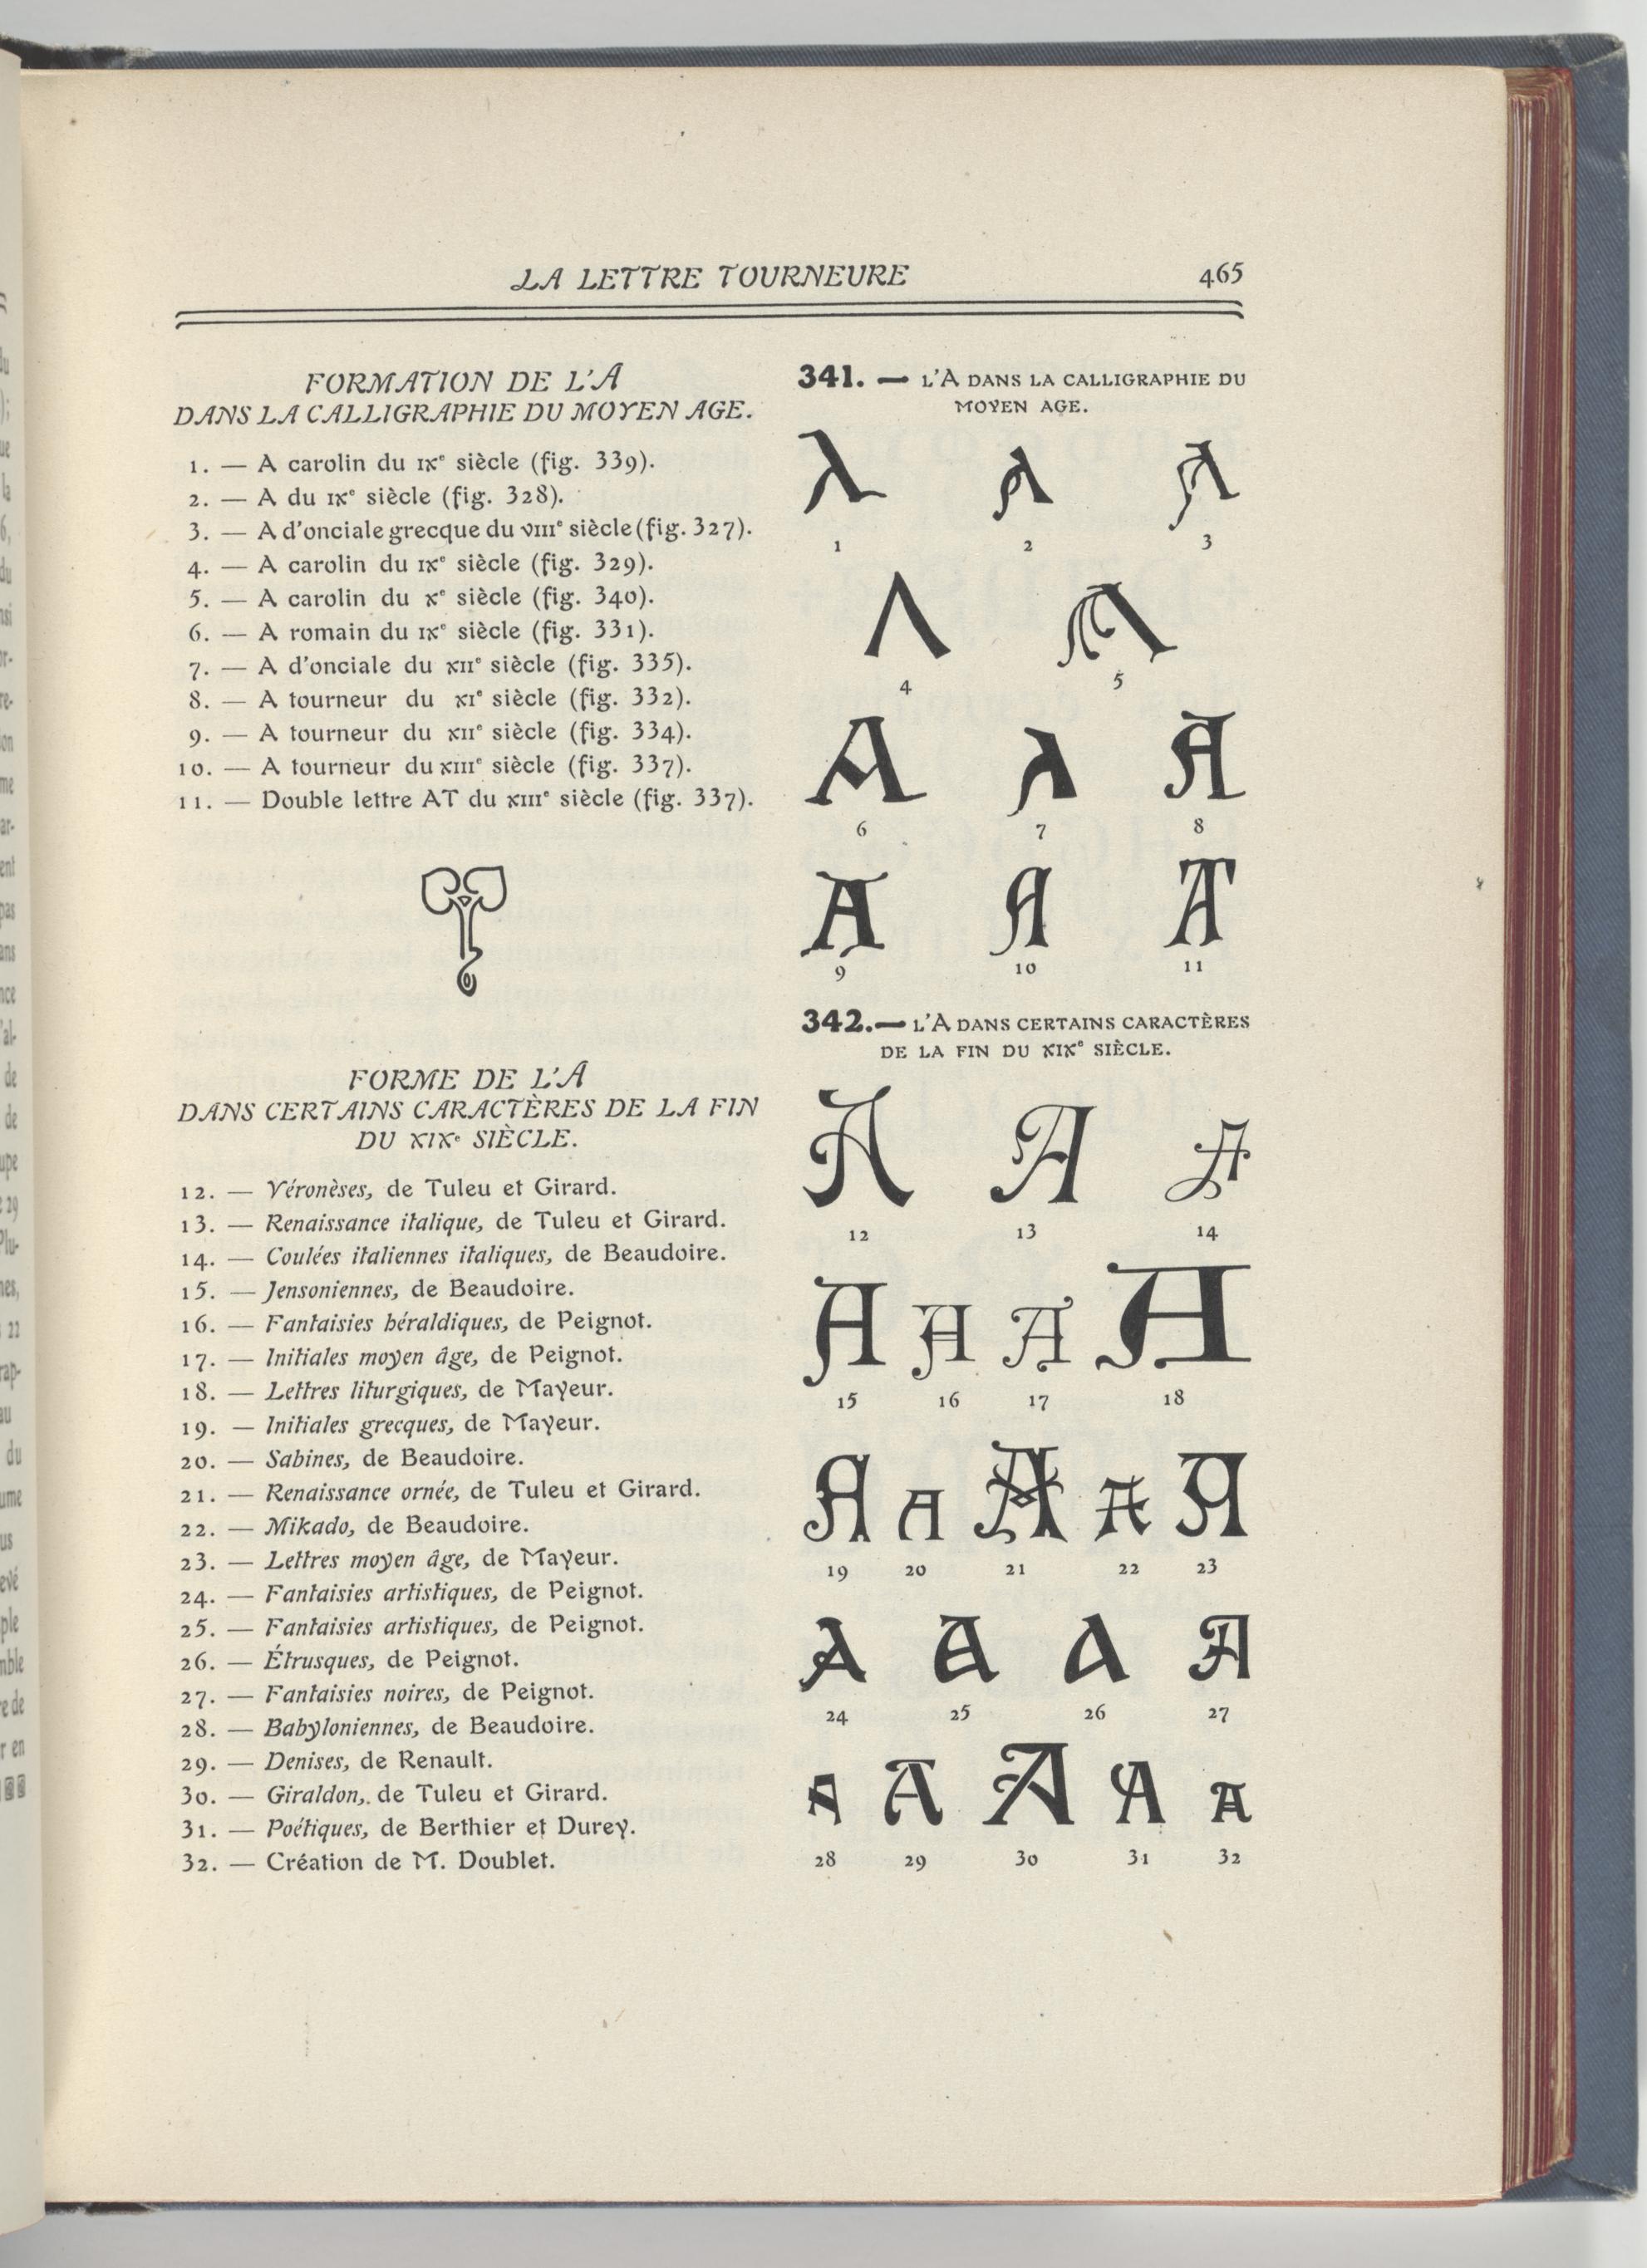 LA LETTRE TOURNEURE 465
FORMATION DE L'A
DANS LA CALLIGRAPHIE DU MOYEN AGE.
1. — A carolin du IXe siècle (fig. 339).
2. — A du IXe siècle (fig. 328).
3. — A d'onciale grecque du VIIIe siècle (fig. 327).
4. — A carolin du IXe siècle (fig. 329).
5. — A carolin du Xe siècle (fig. 340).
6. — A romain du IXe siècle (fig. 331).
7. — A d'onciale du XIIe siècle (fig. 335).
8. — A tourneur du XIe siècle (fig. 332).
9. — A tourneur du XIIe siècle (fig. 334).
10. — A tourneur du XIIIe siècle (fig. 337).
11. — Double lettre AT du XIIIe siècle (fig. 337).
FORME DE L'A
DANS CERTAINS CARACTÈRES DE LA FIN
DU XIXe SIÈCLE.
12. — Véronèses, de Tuleu et Girard.
13. — Renaissance italique, de Tuleu et Girard.
14. — Coulées italiennes italiques, de Beaudoire.
15. — Jensoniennes, de Beaudoire.
16. — Fantaisies héraldiques, de Peignot.
17. — Initiales moyen âge, de Peignot.
18. — Lettres liturgiques, de Mayeur.
19. — Initiales grecques, de Mayeur.
20. — Sabines, de Beaudoire.
21. — Renaissance ornée, de Tuleu et Girard.
22. — Mikado, de Beaudoire.
23. — Lettres moyen âge, de Mayeur.
24. — Fantaisies artistiques, de Peignot.
25. — Fantaisies artistiques, de Peignot.
26. — Étrusques, de Peignot.
27. — Fantaisies noires, de Peignot.
28. — Babyloniennes, de Beaudoire.
29. — Denises, de Renault.
30. — Giraldon, de Tuleu et Girard.
31. — Poétiques, de Berthier et Durey.
32. — Création de M. Doublet.
341. — L'A DANS LA CALLIGRAPHIE DU
MOYEN AGE.
A A A
1 2 3
A A
4 5
A A A
6 7 8
A A AT
9 10 11
342. — L'A DANS CERTAINS CARACTÈRES
DE LA FIN DU XIXe SIÈCLE.
A A A
12 13 14
A A A A
15 16 17 18
A A A A A
19 20 21 22 23
A A A A
24 25 26 27
A A A A A
28 29 30 31 32